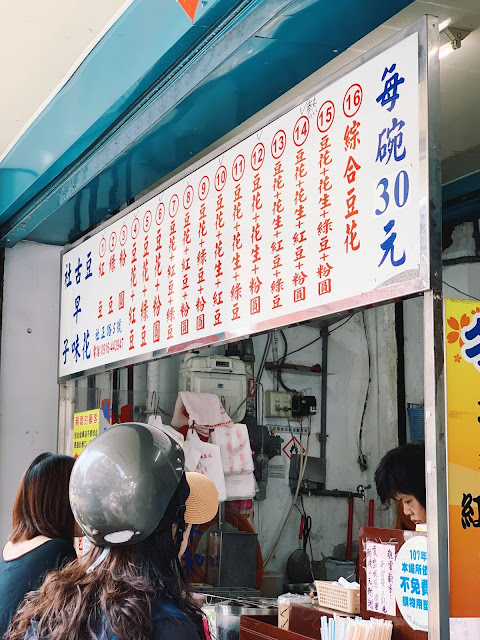 每碗30元
16 綜合豆花
15 豆花+花生+綠豆+粉圓
14 豆花+花生+紅豆+粉圓
13 豆花+花生+紅豆+綠豆
12 豆花+花生+粉圓
11 豆花+花生+綠豆
10 豆花+花生+紅豆
9 豆花+綠豆+粉圓
8 豆花+紅豆+粉圓
7 豆花+紅豆+綠豆
6 豆花+粉圓
5 豆花+綠豆
4 豆花+紅豆
3 粉圓
2 綠豆
1 紅豆
豆花
古早味
社子
社正路3號
107年
本場所依
不免費
購物用塑
紅